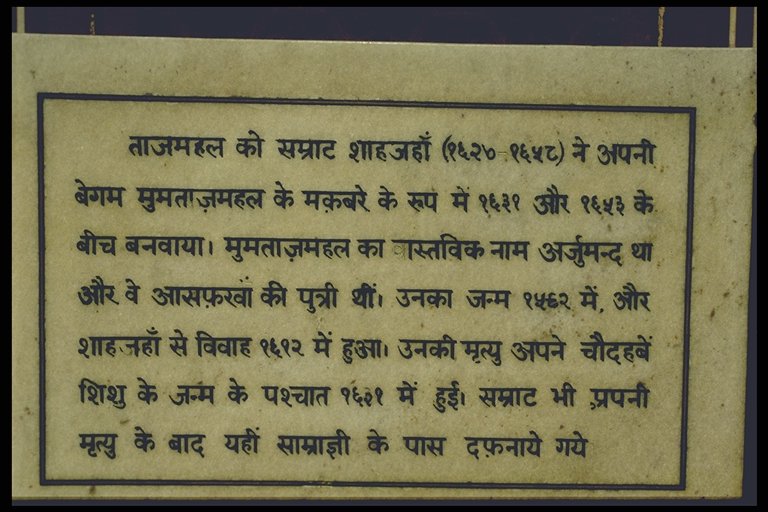 ताजमहल को सम्राट शाहजहाँ (१६२७-१६५८) ने अपनी
बेगम मुमताज़महल के मक़बरे के रूप में १६३१ और १६५३ के
बीच बनवाया। मुमताज़महल का वास्तविक नाम अर्जुमन्द था
और वे आसफ़खां की पुत्री थीं। उनका जन्म १५६२ में, और
शाहजहाँ से विवाह १६१२ में हुआ। उनकी मृत्यु अपने चौदहबें
शिशु के जन्म के पश्चात १६३१ में हुई। सम्राट भी अपनी
मृत्यु के बाद यहीं साम्राज्ञी के पास दफ़नाये गये